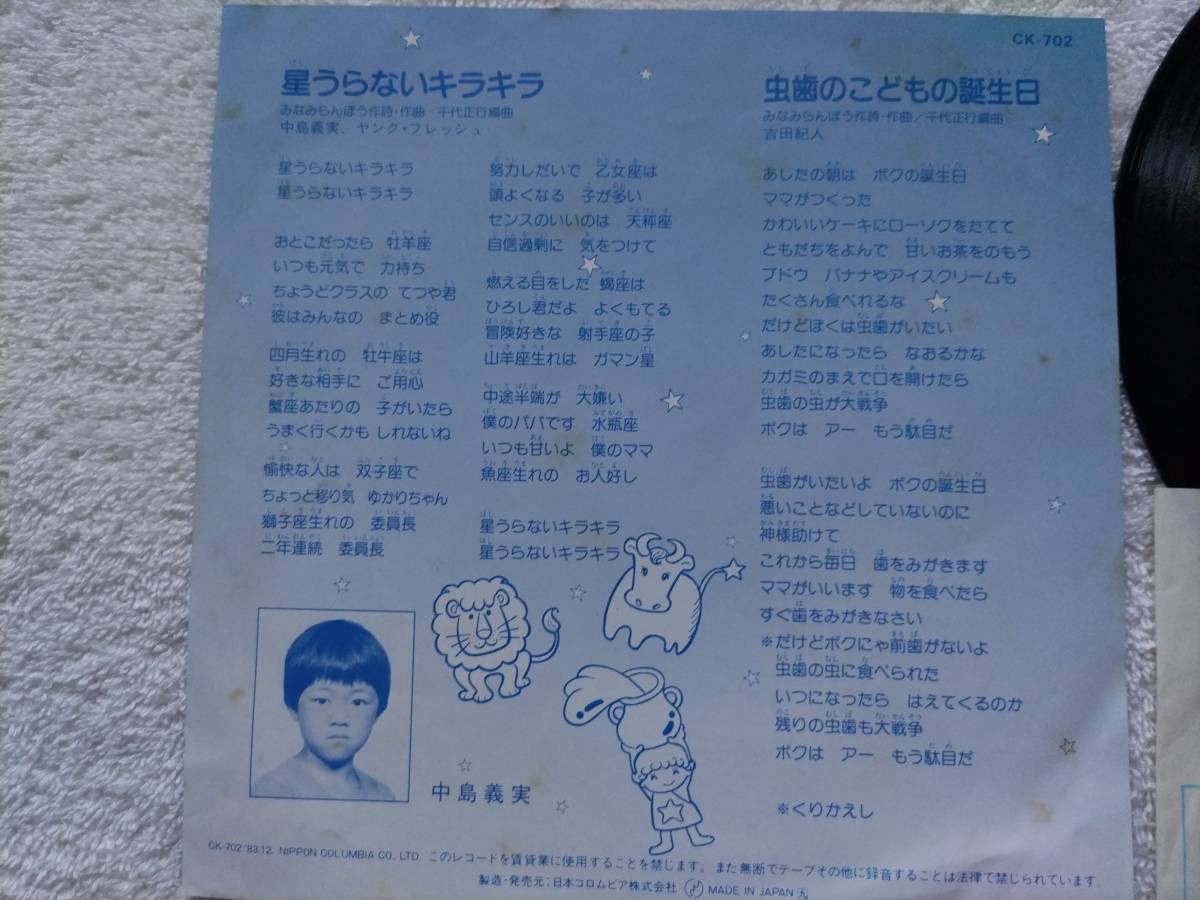 CK-702
星うらないキラキラ
みなみらんぼう作詩・作曲 千代正行編曲
中島義実、ヤング・フレッシュ
星うらないキラキラ
星うらないキラキラ
おとこだったら 牡羊座
いつも元気で 力持ち
ちょうどクラスの てつや君
彼はみんなの まとめ役
四月生れの 牡牛座は
好きな相手に ご用心
蟹座あたりの 子がいたら
うまく行くかも しれないね
愉快な人は 双子座で
ちょっと移り気 ゆかりちゃん
獅子座生れの 委員長
二年連続 委員長
努力しだいで 乙女座は
頭よくなる 子が多い
センスのいいのは 天秤座
自信過剰に 気をつけて
燃える目をした 蠍座は
ひろし君だよ よくもてる
冒険好きな 射手座の子
山羊座生れは ガマン星
中途半端が 大嫌い
僕のパパです 水瓶座
いつも甘いよ 僕のママ
魚座生れの お人好し
星うらないキラキラ
星うらないキラキラ
中島義実
虫歯のこどもの誕生日
みなみらんぼう作詩・作曲/千代正行編曲
吉田紀人
あしたの朝は ボクの誕生日
ママがつくった
かわいいケーキにローソクをたてて
ともだちをよんで 甘いお茶をのもう
ブドウ バナナやアイスクリームも
たくさん食べれるな
だけどぼくは虫歯がいたい
あしたになったら なおるかな
カガミのまえで口を開けたら
虫歯の虫が大戦争
ボクは アー もう駄目だ
虫歯がいたいよ ボクの誕生日
悪いことなどしていないのに
神様助けて
これから毎日 歯をみがきます
ママがいいます 物を食べたら
すぐ歯をみがきなさい
※だけどボクにゃ前歯がないよ
虫歯の虫に食べられた
いつになったら はえてくるのか
残りの虫歯も大戦争
ボクは アー もう駄目だ
※くりかえし
CK-702 '83.12. NIPPON COLUMBIA CO., LTD. このレコードを賃貸業に使用することを禁じます。また無断でテープその他に録音することは法律で禁じられています。
製造・発売元:日本コロムビア株式会社 MADE IN JAPAN